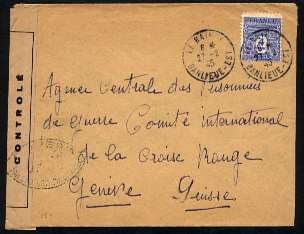 CONTRÔLÉ
FRANCE
BANLIEUE-EST
Agence Centrale des Prisonniers
de Guerre Comité International
de la Croix Rouge
Genève Suisse